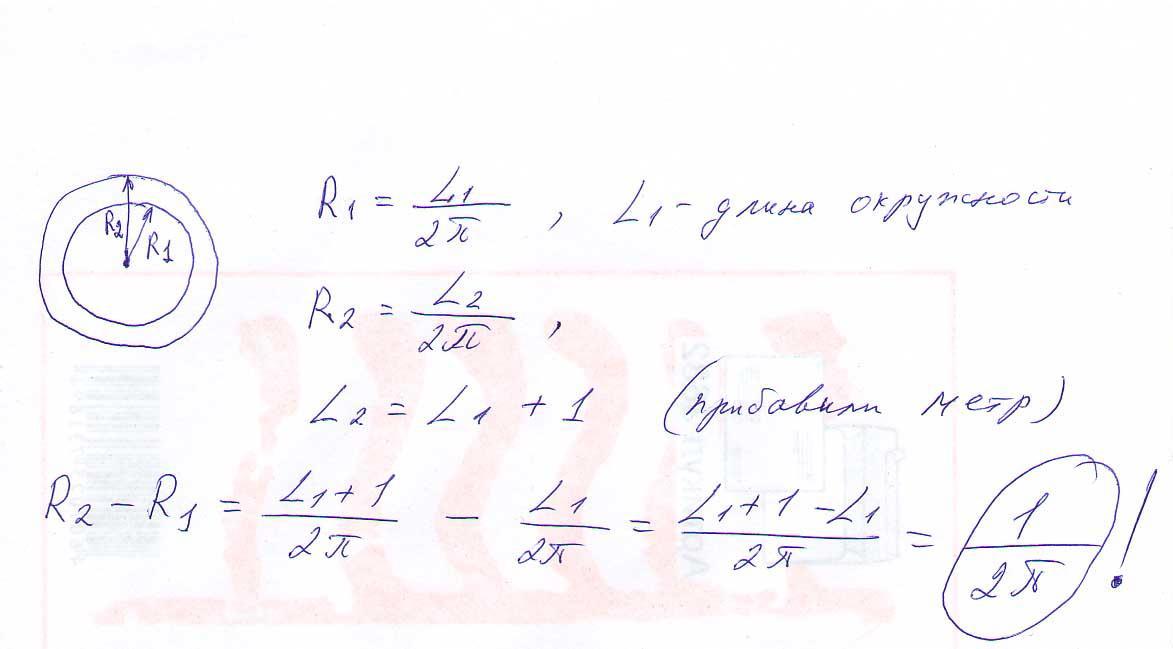 R2 R1
R1 = L1/2π , L1 - длина окружности
R2 = L2/2π ,
L2 = L1 + 1 (прибавили метр)
R2 - R1 = L1+1/2π - L1/2π = L1+1-L1/2π = 1/2π !